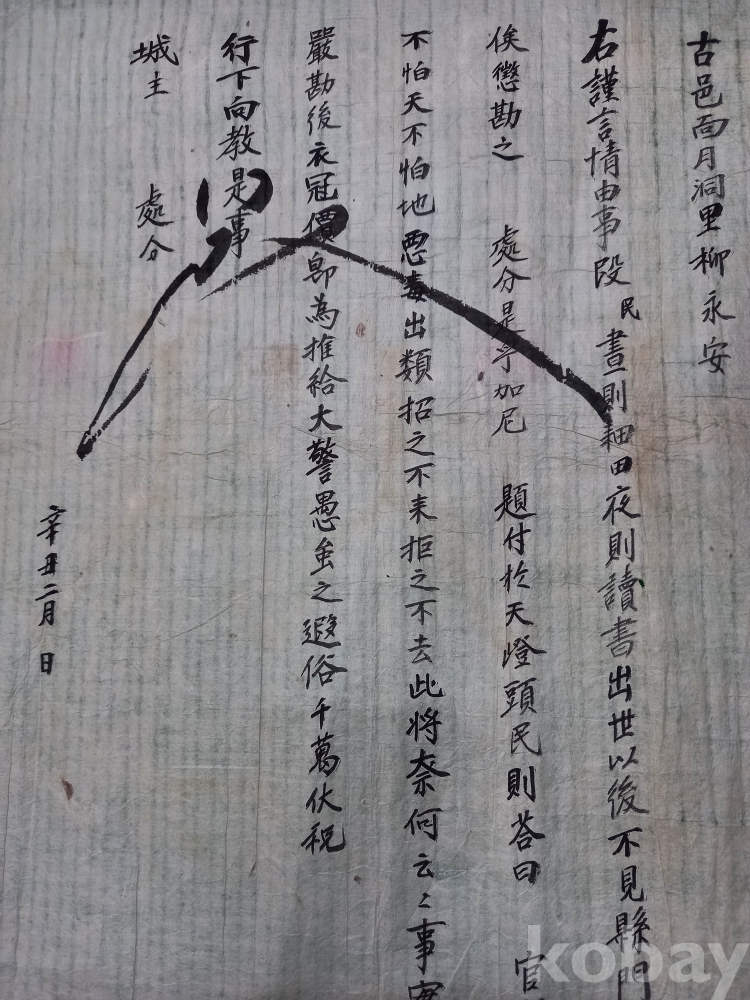 古邑面月洞里柳永安
右謹言情由事段民晝則細田夜則讀書出世以後不見縣門
俟懲勘之 處分是乎加尼 題付於天嶝頭民則答曰 官
不怕天不怕地惡毒出類招之不来拒之不去此将奈何云〻事
嚴勘後衣冠價卽為推給大警愚蚩之遐俗千萬伏祝
行下向教是事
城主 處分
辛丑二月 日
kobay